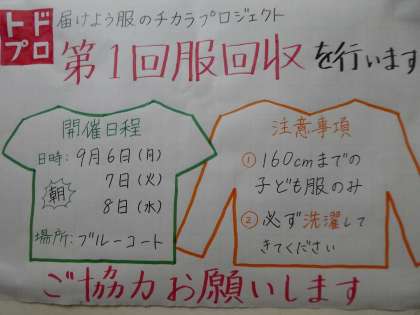 トド
プロ
届けよう服のチカラプロジェクト
第1回服回収を行います
開催日程
日時:9月6日(月)
朝 7日(火)
8日(水)
場所:ブルーコート
注意事項
① 160cmまでの
子ども服のみ
② 必ず洗濯して
きてください
ご協力お願いします